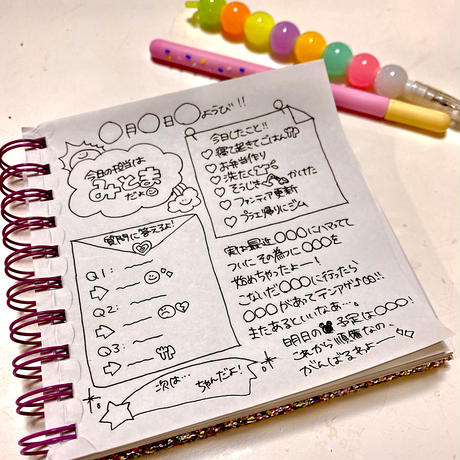 〇月〇日〇ようび!!
今日の担当は
みとま
だよ
今日したこと!!
♡寝て起きてごはん
♡お弁当作り
♡洗たく
♡そうじき かけた
♡ファンティア更新
♡プラエ帰りにジム
質問に答えるよ!
Q1:
Q2:
Q3:
次は… ちゃんだよ!
実は最近〇〇〇にハマってて
ついにその為に〇〇〇を
始めちゃったよー!
こないだ〇〇〇に行ったら
〇〇〇があってテンアゲ!!
またあるといいなぁ…。
明日の予定は〇〇〇!
これから準備なの…
がんばるわよー